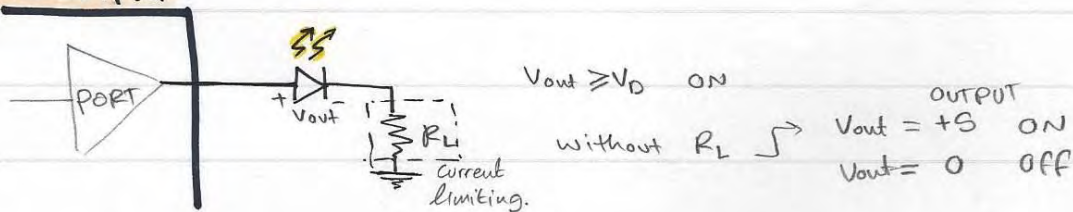 PORT
+ Vout -
RL
current
limiting.
Vout ≥ VD ON
without RL
OUTPUT
Vout = +5 ON
Vout = 0 OFF